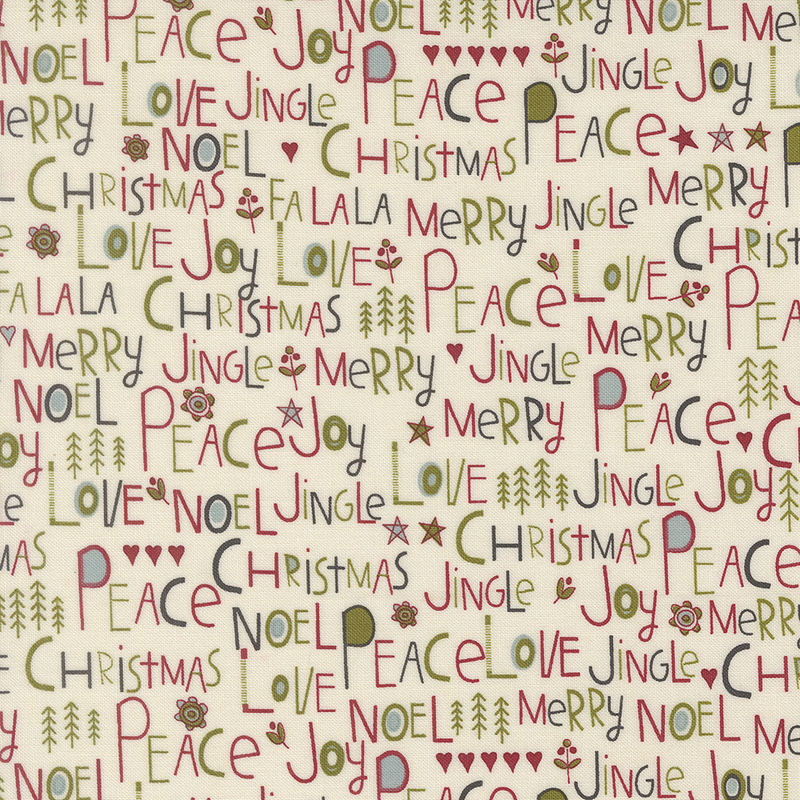 PEACE Joy CHRISTMAS MERRY NOEL ME
NOEL LOVE JINGLE PEACE JINGLE Joy
MERRY NOEL CHRISTMAS PEACE
CHRISTMAS FA LALA MERRY JINGLE MERRY
LOVE Joy LOVE PEACE LOVE CHRIST
FA LALA CHRISTMAS MERRY PEA
MERRY JINGLE MERRY JINGLE
NOEL PEACE Joy MERRY PEACE
oy LOVE JINGLE Joy
LOVE NOEL JINGLE CHRISTMAS PEACE
MAS PEACE CHRISTMAS JINGLE Joy MERRY
NOEL PEACE LOVE JINGLE CH
CHRISTMAS LOVE NOEL MERRY NOEL ME
PEACE Joy PEACE JINGLE Joy
NOEL